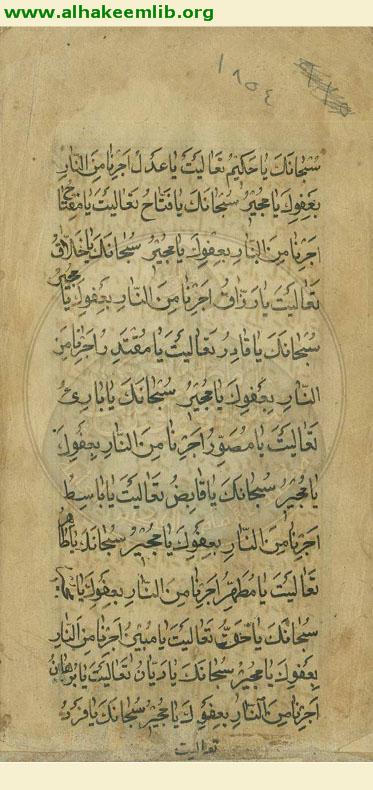 www.alhakeemlib.org
١٨٥٤
سُبْحَانَكَ يَا حَكِيمُ تَعَالَيْتَ يَا عَدْلُ اَجِرْنَا مِنَ النَّارِ
بِعَفْوِكَ يَا مُجِيْرُ سُبْحَانَكَ يَا فَتَّاحُ تَعَالَيْتَ يَا مِفْتَاحُ
اَجِرْنَا مِنَ النَّارِ بِعَفْوِكَ يَا مُجِيْرُ سُبْحَانَكَ يَا خَلَّاقُ
تَعَالَيْتَ يَا رَزَّاقُ اَجِرْنَا مِنَ النَّارِ بِعَفْوِكَ يَا مُجِيْرُ
سُبْحَانَكَ يَا قَادِرُ تَعَالَيْتَ يَا مُقْتَدِرُ اَجِرْنَا مِنَ
النَّارِ بِعَفْوِكَ يَا مُجِيْرُ سُبْحَانَكَ يَا بَارِئُ
تَعَالَيْتَ يَا مُصَوِّرُ اَجِرْنَا مِنَ النَّارِ بِعَفْوِكَ
يَا مُجِيْرُ سُبْحَانَكَ يَا قَابِضُ تَعَالَيْتَ يَا بَاسِطُ
اَجِرْنَا مِنَ النَّارِ بِعَفْوِكَ يَا مُجِيْرُ سُبْحَانَكَ يَا طَاهِرُ
تَعَالَيْتَ يَا مُطَهِّرُ اَجِرْنَا مِنَ النَّارِ بِعَفْوِكَ يَا
سُبْحَانَكَ يَا حَقُّ تَعَالَيْتَ يَا مُبِيْنُ اَجِرْنَا مِنَ النَّارِ
بِعَفْوِكَ يَا مُجِيْرُ سُبْحَانَكَ يَا دَيَّانُ تَعَالَيْتَ يَا بُرْهَانُ
اَجِرْنَا مِنَ النَّارِ بِعَفْوِكَ يَا مُجِيْرُ سُبْحَانَكَ يَا فَرْدُ
تعاليت